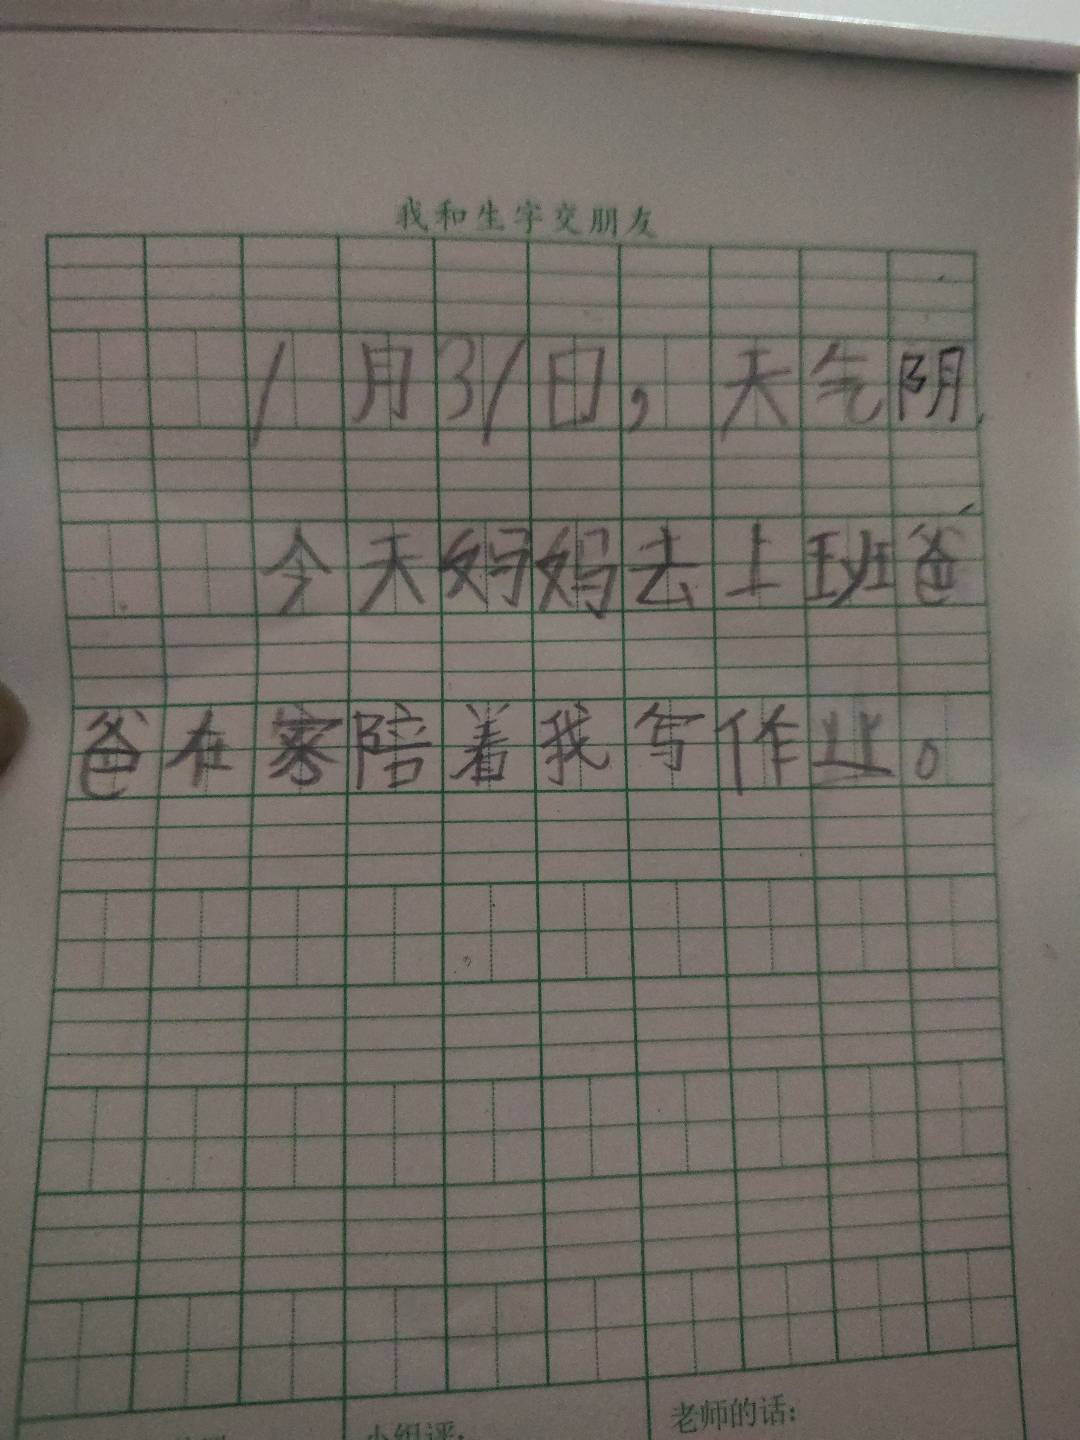 我和生字交朋友
1月31日,天气阴
今天妈妈去上班爸
爸在家陪着我写作业。
小组评:
老师的话: